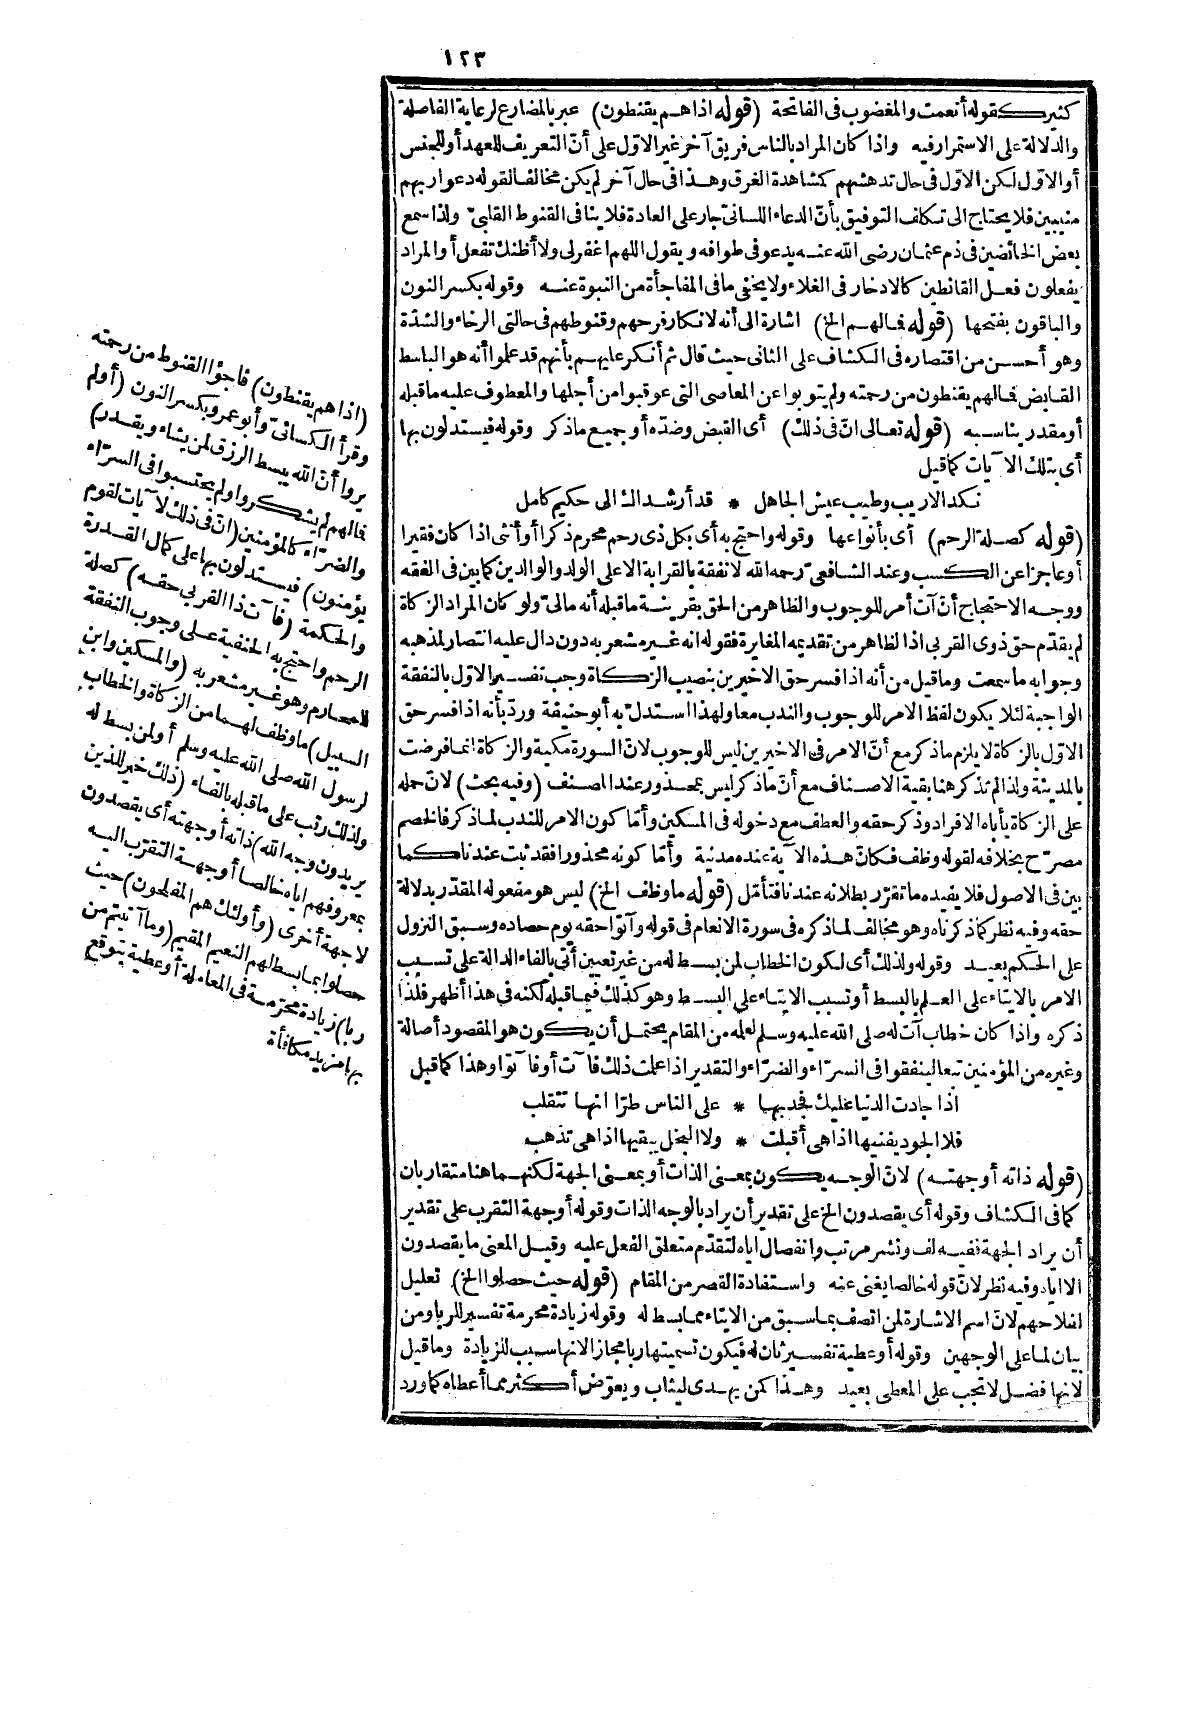 ١٢٣
كثيرك‍قوله أنعمت والمغضوب فى الفاتحة (قوله اذا هم يقنطون) عبر بالمضارع لرعاية الفاصلة
والدلالة على الاستمرار فيه واذا كان المراد بالناس فريق آخر غير الاوّل على أنّ التعريف للعهد أو للجنس
أو الاوّل لكن الاوّل فى حال تدهشهم كمشاهدة الغرق وهذا فى حال آخر لم يكن مخالفا لقوله دعوا ربهم
منيبين فلا يحتاج الى تكلف التوفيق بأنّ الدعاء اللسانىّ جار على العادة فلا ينافى القنوط القلبىّ ولذا سمع
بعض الخائضين فى ذم عثمان رضى الله عنه يدعو فى طوافه ويقول اللهم اغفر لى ولا أظنك تفعل أو المراد
يفعلون فعل القانطين كالادخار فى الغلاء ولا يخفى ما فى المفاجأة من النبوة عنه وقوله بكسر النون
والباقون بفتحها (قوله فمالهم الخ) اشارة الى أنه لانكار فرحهم وقنوطهم فى حالتى الرخاء والشدّة
وهو أحسن من اقتصاره فى الكشاف على الثانى حيث قال ثم أنكر عليهم بأنهم قد علموا أنه هو الباسط
القابض فمالهم يقنطون من رحمته ولم يتوبوا عن المعاصى التى عوقبوا من أجلها والمعطوف عليه ما قبله
أو مقدر يناسبه (قوله تعالى انّ فى ذلك) أى القبض وضدّه أو جميع ما ذكر وقوله فيستدلون بها
أى بتلك الآيات كما قيل
نكد الاريب وطيب عيش الجاهل * قد أرشداك الى حكيم كامل
(قوله كصلة الرحم) أى بأنواعها وقوله واحتج به أى بكل ذى رحم محرم ذكرا أو أنثى اذا كان فقيرا
أو عاجزا عن الكسب وعند الشافعىّ رحمه الله لا نفقة بالقرابة الا على الولد والوالدين كما بين فى الفقه
ووجه الاحتجاج أنّ آت أمر للوجوب والظاهر من الحق بقرينة ما قبله أنه مالىّ ولو كان المراد الزكاة
لم يقدّم حق ذوى القربى اذ الظاهر من تقديمه المغايرة فقوله انه غير مشعر به دون دال عليه انتصار لمذهبه
وجوابه ما سمعت وما قيل من أنه اذا فسر حق الاخيرين بنصيب الزكاة وجب تفسير الاول بالنفقة
الواجبة لئلا يكون لفظ الامر للوجوب والندب معا ولهذا استدلّ به أبو حنيفة وردّ بأنه اذا فسر حق
الاوّل بالزكاة لا يلزم ما ذكر مع أنّ الامر فى الاخيرين ليس للوجوب لانّ السورة مكية والزكاة انما فرضت
بالمدينة ولذا لم تذكر هنا بقية الاصناف مع أنّ ما ذكر ليس بمحذور عند المصنف (وفيه بحث) لانّ حمله
على الزكاة يأباه الافراد وذكر حقه والعطف مع دخوله فى المسكين وأمّا كون الامر للندب لما ذكر فالخصم
مصرّح بخلافه لقوله وظف فكانّ هذه الآية عنده مدنية وأمّا كونه محذورا فقد ثبت عندنا كما
بين فى الاصول فلا يفيده ما تقرّر بطلانه عندنا فتأمّل (قوله ما وظف الخ) ليس هو مفعوله المقدّر بدلالة
حقه وفيه نظر كما ذكرناه وهو مخالف لما ذكره فى سورة الانعام فى قوله وآتوا حقه يوم حصاده وسبق النزول
على الحكم بعيد وقوله ولذلك أى لكون الخطاب لمن بسط له من غير تعيين أتى بالفاء الدالة على تسبب
الامر بالايتاء على العلم بالبسط أو تسبب الايتاء على البسط وهو كذلك فيما قبله لكنه فى هذا أظهر فلذا
ذكره واذا كان خطاب آت له صلى الله عليه وسلم لعلمه من المقام يحتمل أن يكون هو المقصود أصالة
وغيره من المؤمنين تبعا لينفقوا فى السرّاء والضرّاء والتقدير اذا علمت ذلك فآت أو فآتوا وهذا كما قيل
اذا جادت الدنيا عليك فجد بها * على الناس طرّا انها تتقلب
فلا الجود يفنيها اذا هى أقبلت * ولا البخل يبقيها اذا هى تذهب
(قوله ذاته أو جهته) لانّ الوجه يكون بمعنى الذات أو بمعنى الجهة لكنهما هنا متقاربان
كما فى الكشاف وقوله أى يقصدون الخ على تقدير أن يراد بالوجه الذات وقوله أو جهة التقرب على تقدير
أن يراد الجهة نفيه لف ونشر مرتب وانفصال اياه لتقدّم متعلق الفعل عليه وقيل المعنى ما يقصدون
الا اياه وفيه نظر لانّ قوله خالصا يغنى عنه واستفادة القصر من المقام (قوله حيث حصلوا الخ) تعليل
لفلاحهم لانّ اسم الاشارة لمن اتصف بما سبق من الايتاء مما بسط له وقوله زيادة محرمة تفسير للربا ومن
بيان لما على الوجهين وقوله أو عطية تفسير ثان له فيكون تسميتها ربا مجازا لانها سبب للزيادة وما قيل
لانها فضل لا تجب على المعطى بعيد وهذا كمن يهدى ليثاب ويعوّض أكثر مما أعطاه كما ورد
(اذا هم يقنطون) فاجؤا القنوط من رحمته
وقرأ الكسائىّ وأبو عمرو بكسر النون (أولم
يروا أنّ الله يبسط الرزق لمن يشاء ويقدر)
فمالهم لم يشكروا ولم يحتسبوا فى السرّاء
والضرّاء كالمؤمنين (انّ فى ذلك لآيات لقوم
يؤمنون) فيستدلون بها على كمال القدرة
والحكمة (فآت ذا القربى حقه) كصلة
الرحم واحتج به الحنفية على وجوب النفقة
للمحارم وهو غير مشعر به (والمسكين وابن
السبيل) ما وظف لهما من الزكاة والخطاب
لرسول الله صلى الله عليه وسلم أو لمن بسط له
ولذلك رتب على ما قبله بالفاء (ذلك خير للذين
يريدون وجه الله) ذاته أو جهته أى يقصدون
بمعروفهم اياه خالصا أو جهة التقرّب اليه
لا جهة أخرى (وأولئك هم المفلحون) حيث
حصلوا بما بسط لهم النعيم المقيم (وما آتيتم من
ربا) زيادة محرّمة فى المعاملة أو عطية يتوقع
بها مزيد مكافأة